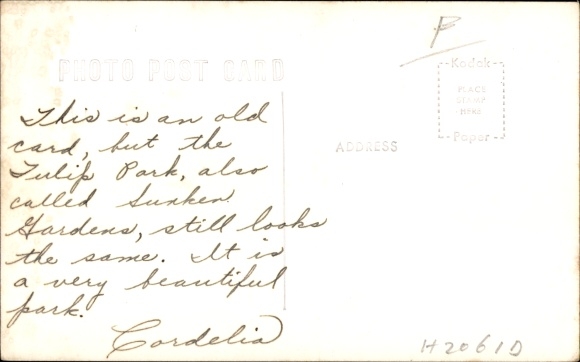 P
PHOTO POST CARD
Kodak
PLACE
STAMP
HERE
Paper
ADDRESS
This is an old
card, but the
Tulip Park, also
called Sunken
Gardens, still looks
the same. It is
a very beautiful
park.
Cordelia
H2061D